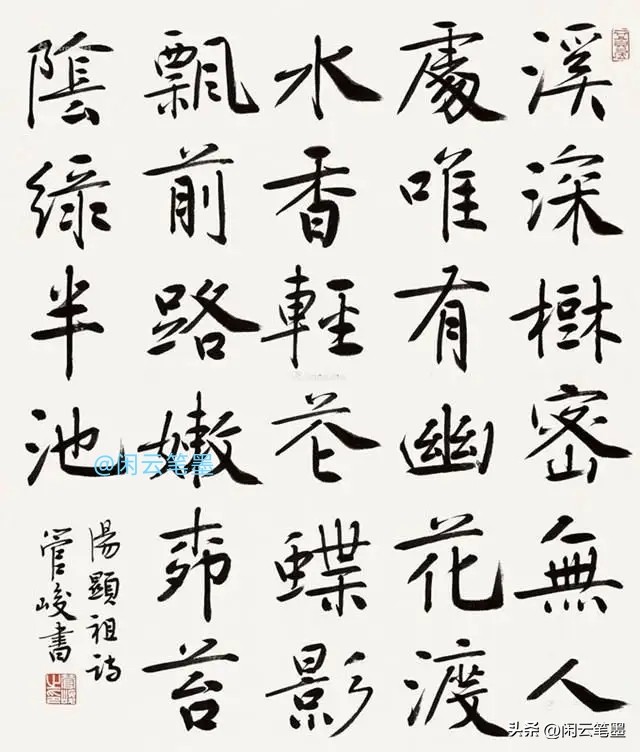 溪深樹密無人
處唯有幽花渡
水香輕花蝶影
飄前路嫩柳苔
陰綠半池
湯顯祖詩
管峻書
@闲云笔墨
头条 @闲云笔墨